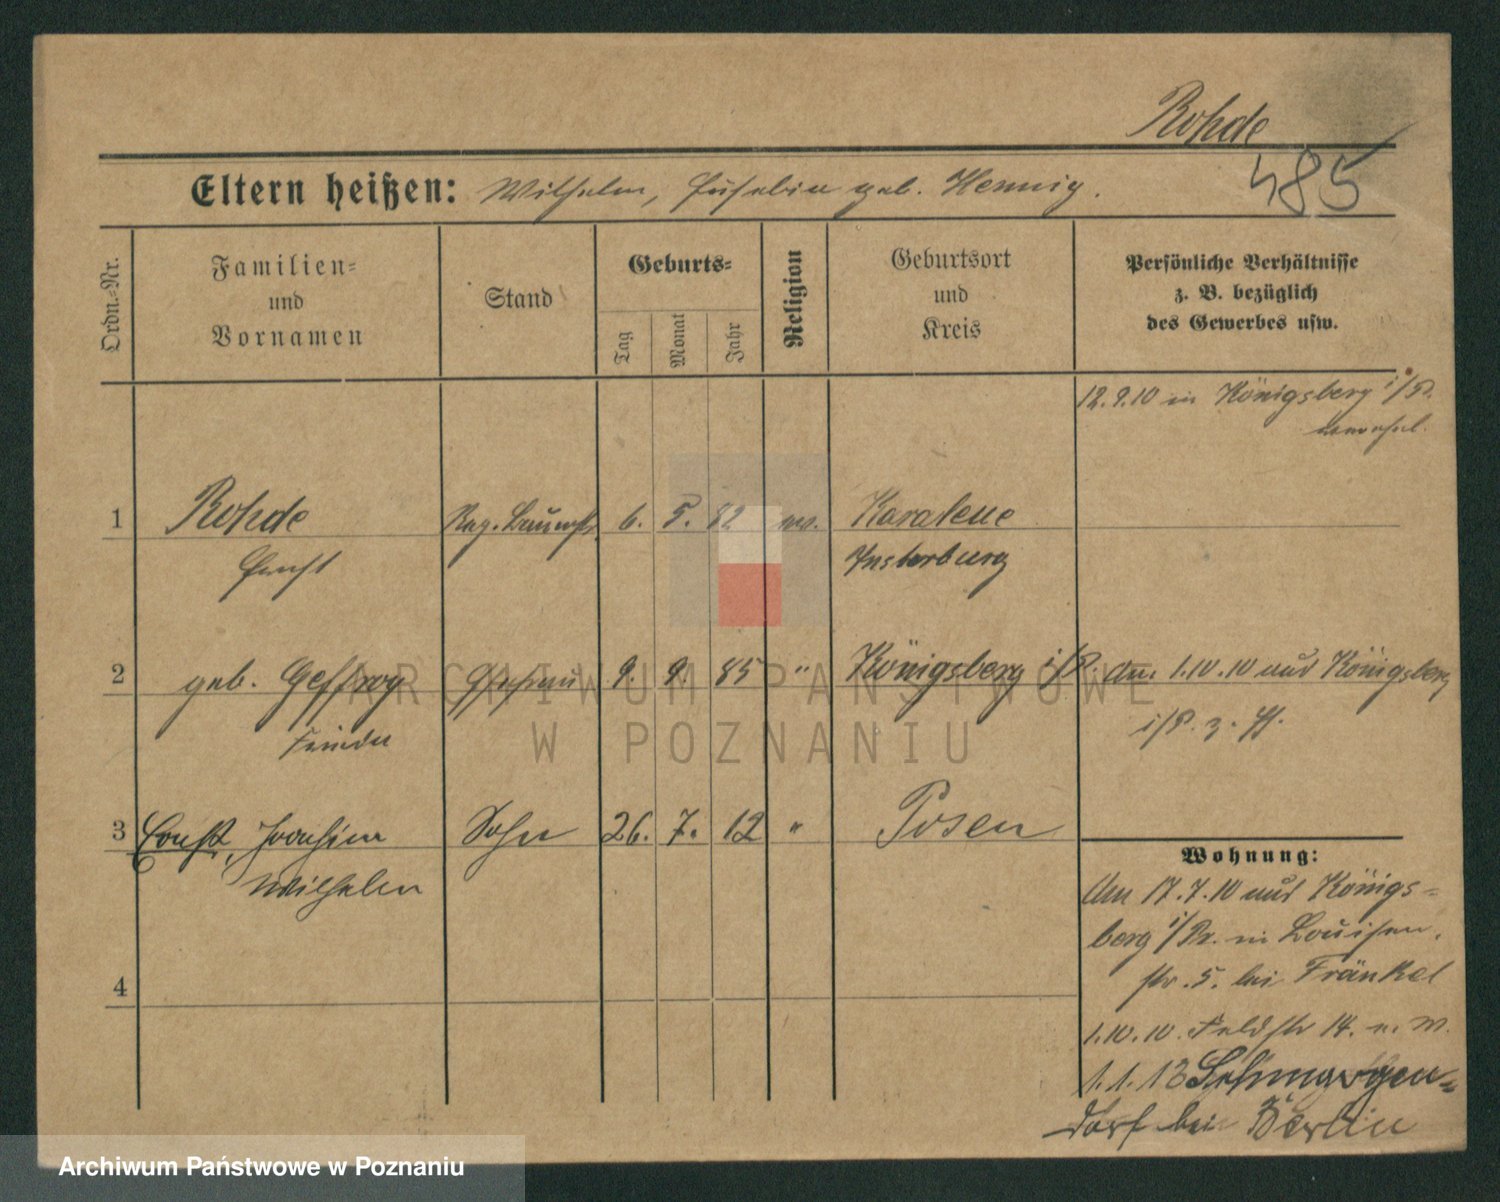 Rohde
485
Eltern heißen: Wilhelm, Eusebia geb. Hennig.
Ordn.=Nr.
Familien=
und
Vornamen
Stand
Geburts=
Tag
Monat
Jahr
Religion
Geburtsort
und
Kreis
Persönliche Verhältnisse
z. B. bezüglich
des Gewerbes usw.
12.9.10 in Königsberg i/Pr.
1 Rohde Reg. Baumstr. 6. 5. 82 ev. Karalene
Ernst Insterburg
2 geb. Geffroy Ehefrau 9. 9. 85 " Königsberg i/P. Am 1.10.10 aus Königsberg
Frieda i/P. z. H.
3 Ernst, Joachim Sohn 26. 7. 12 " Posen
Wilhelm
4
Wohnung:
Am 17.7.10 aus Königs=
berg i/Pr. in Louisen
str. 5. bei Fränkel
1.10.10. Feldstr 14. n. W.
1.1.13
dorf bei Berlin
ARCHIWUM PAŃSTWOWE
W POZNANIU
Archiwum Państwowe w Poznaniu